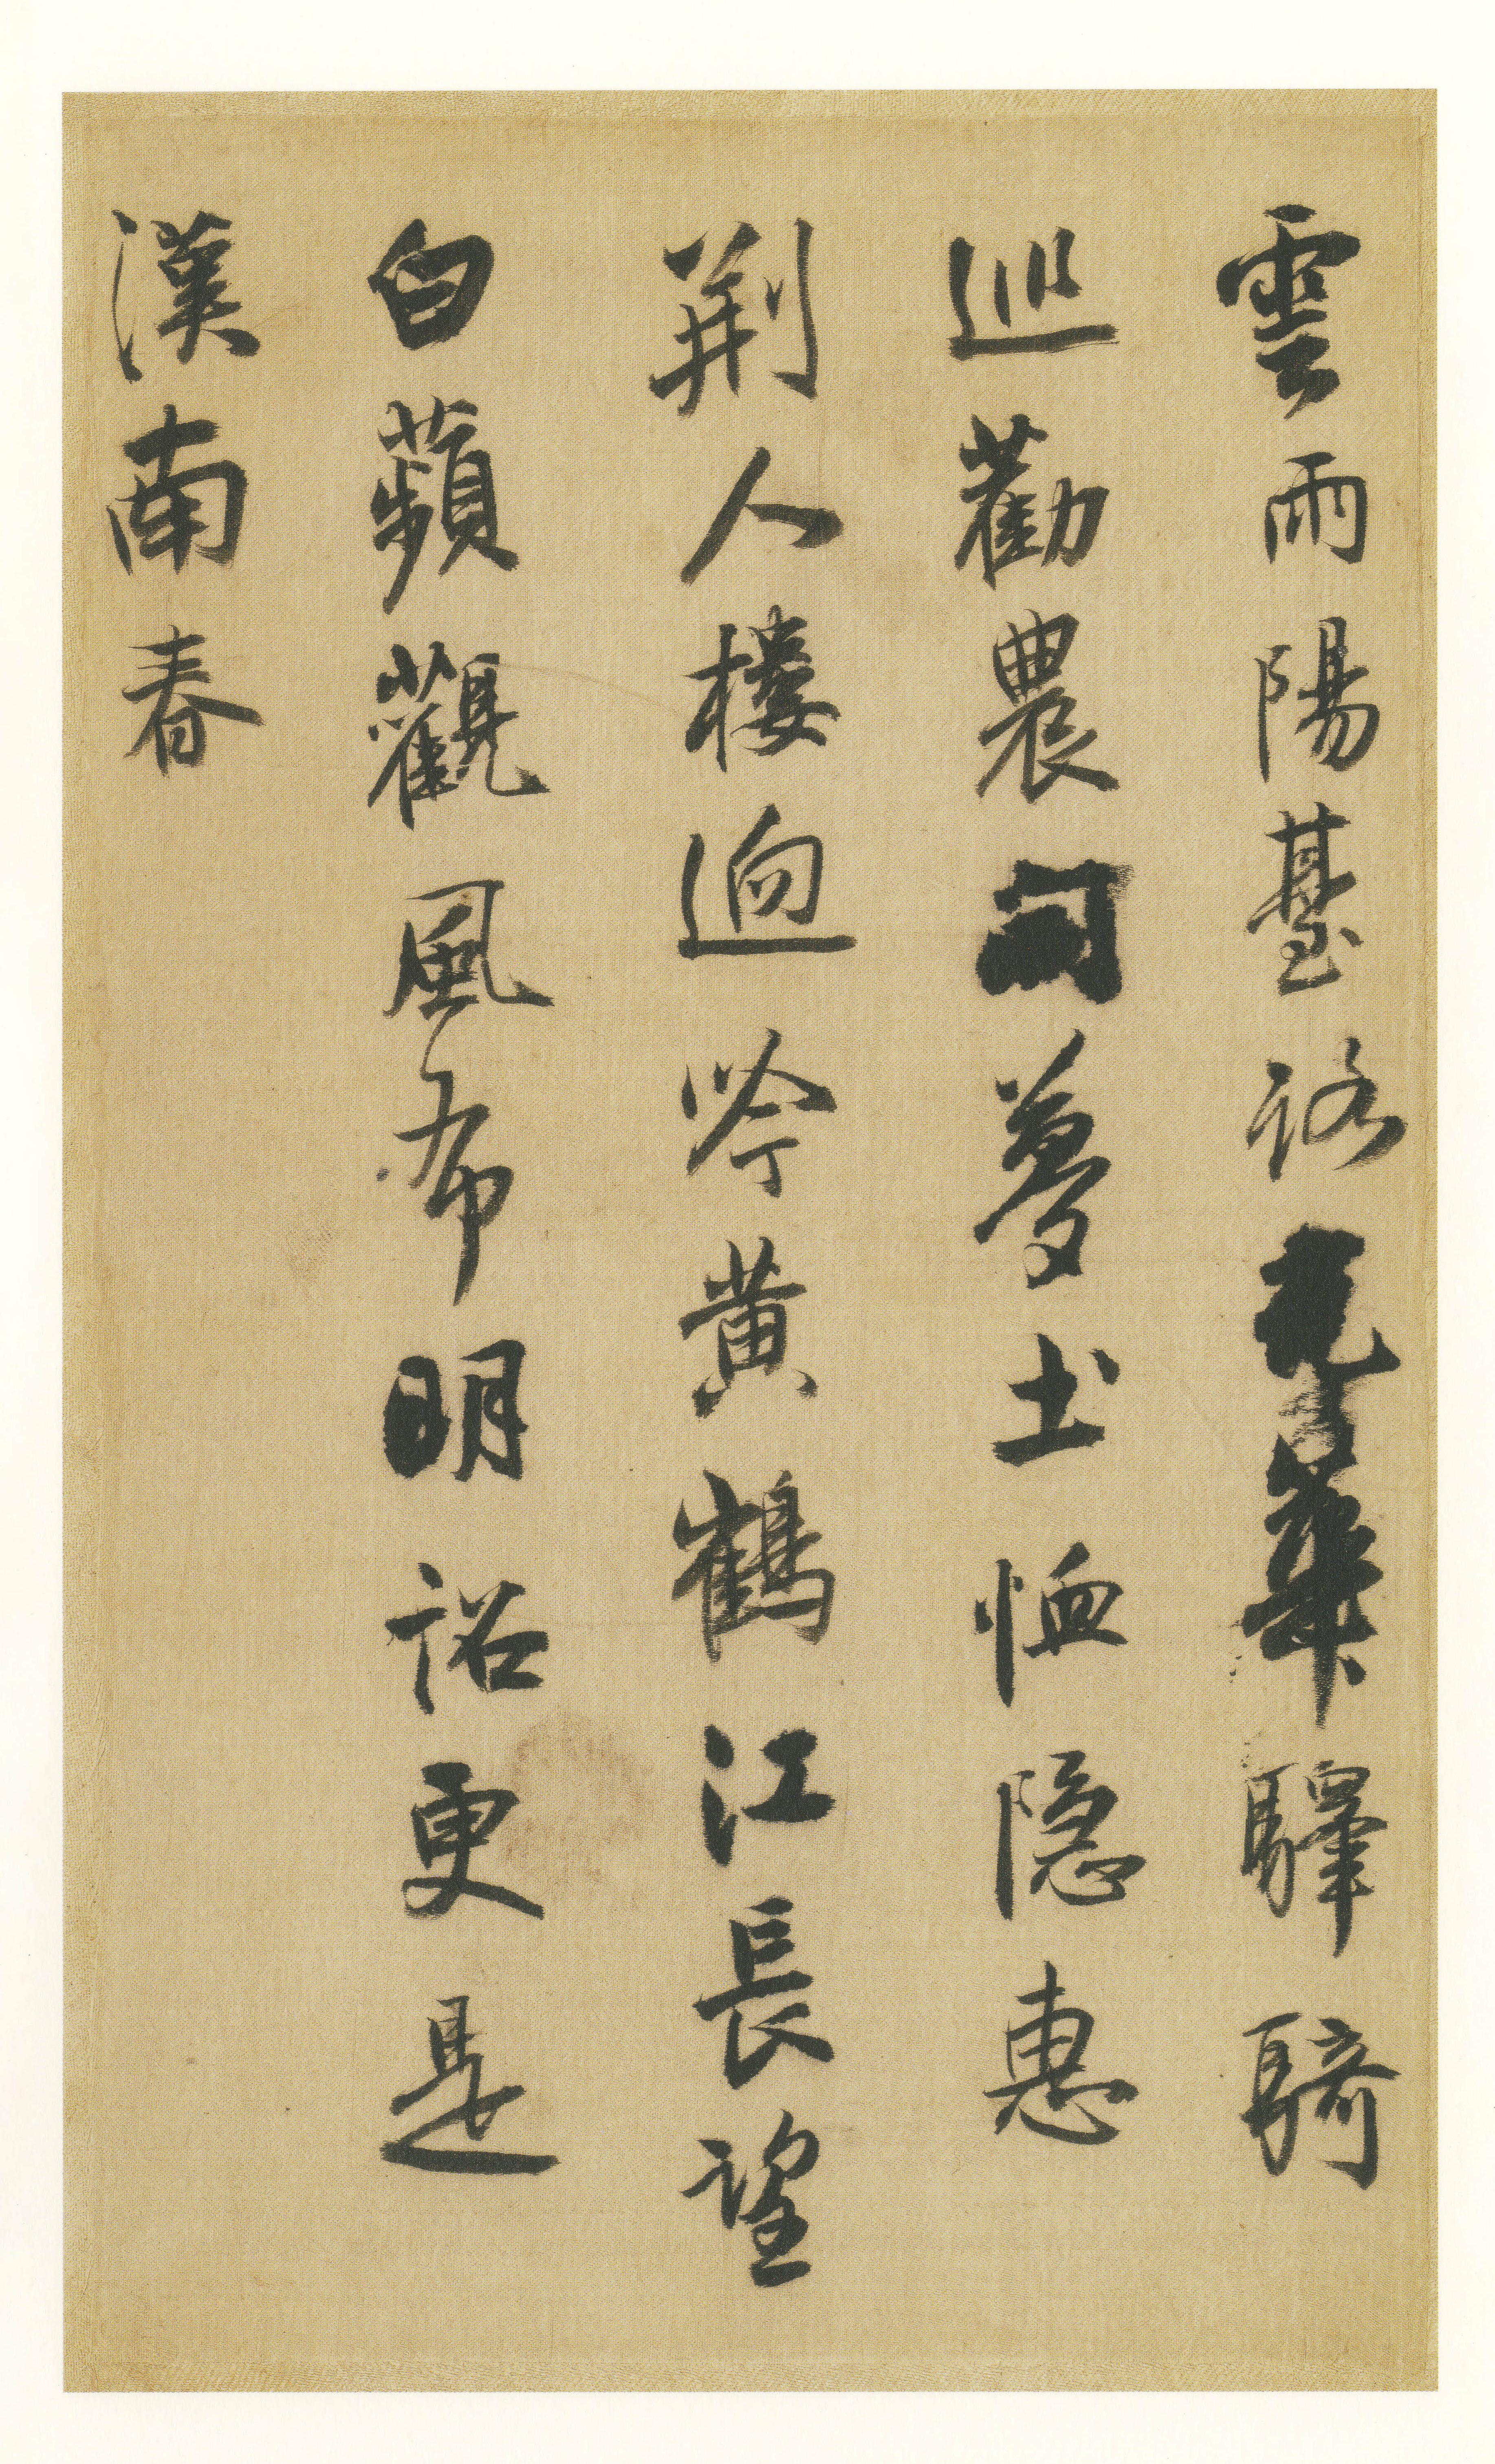 雲雨陽臺路光華驛騎
巡勸農開夢土恤隱惠
荆人樓逈吟黃鶴江長望
白蘋觀風布明詔更是
漢南春